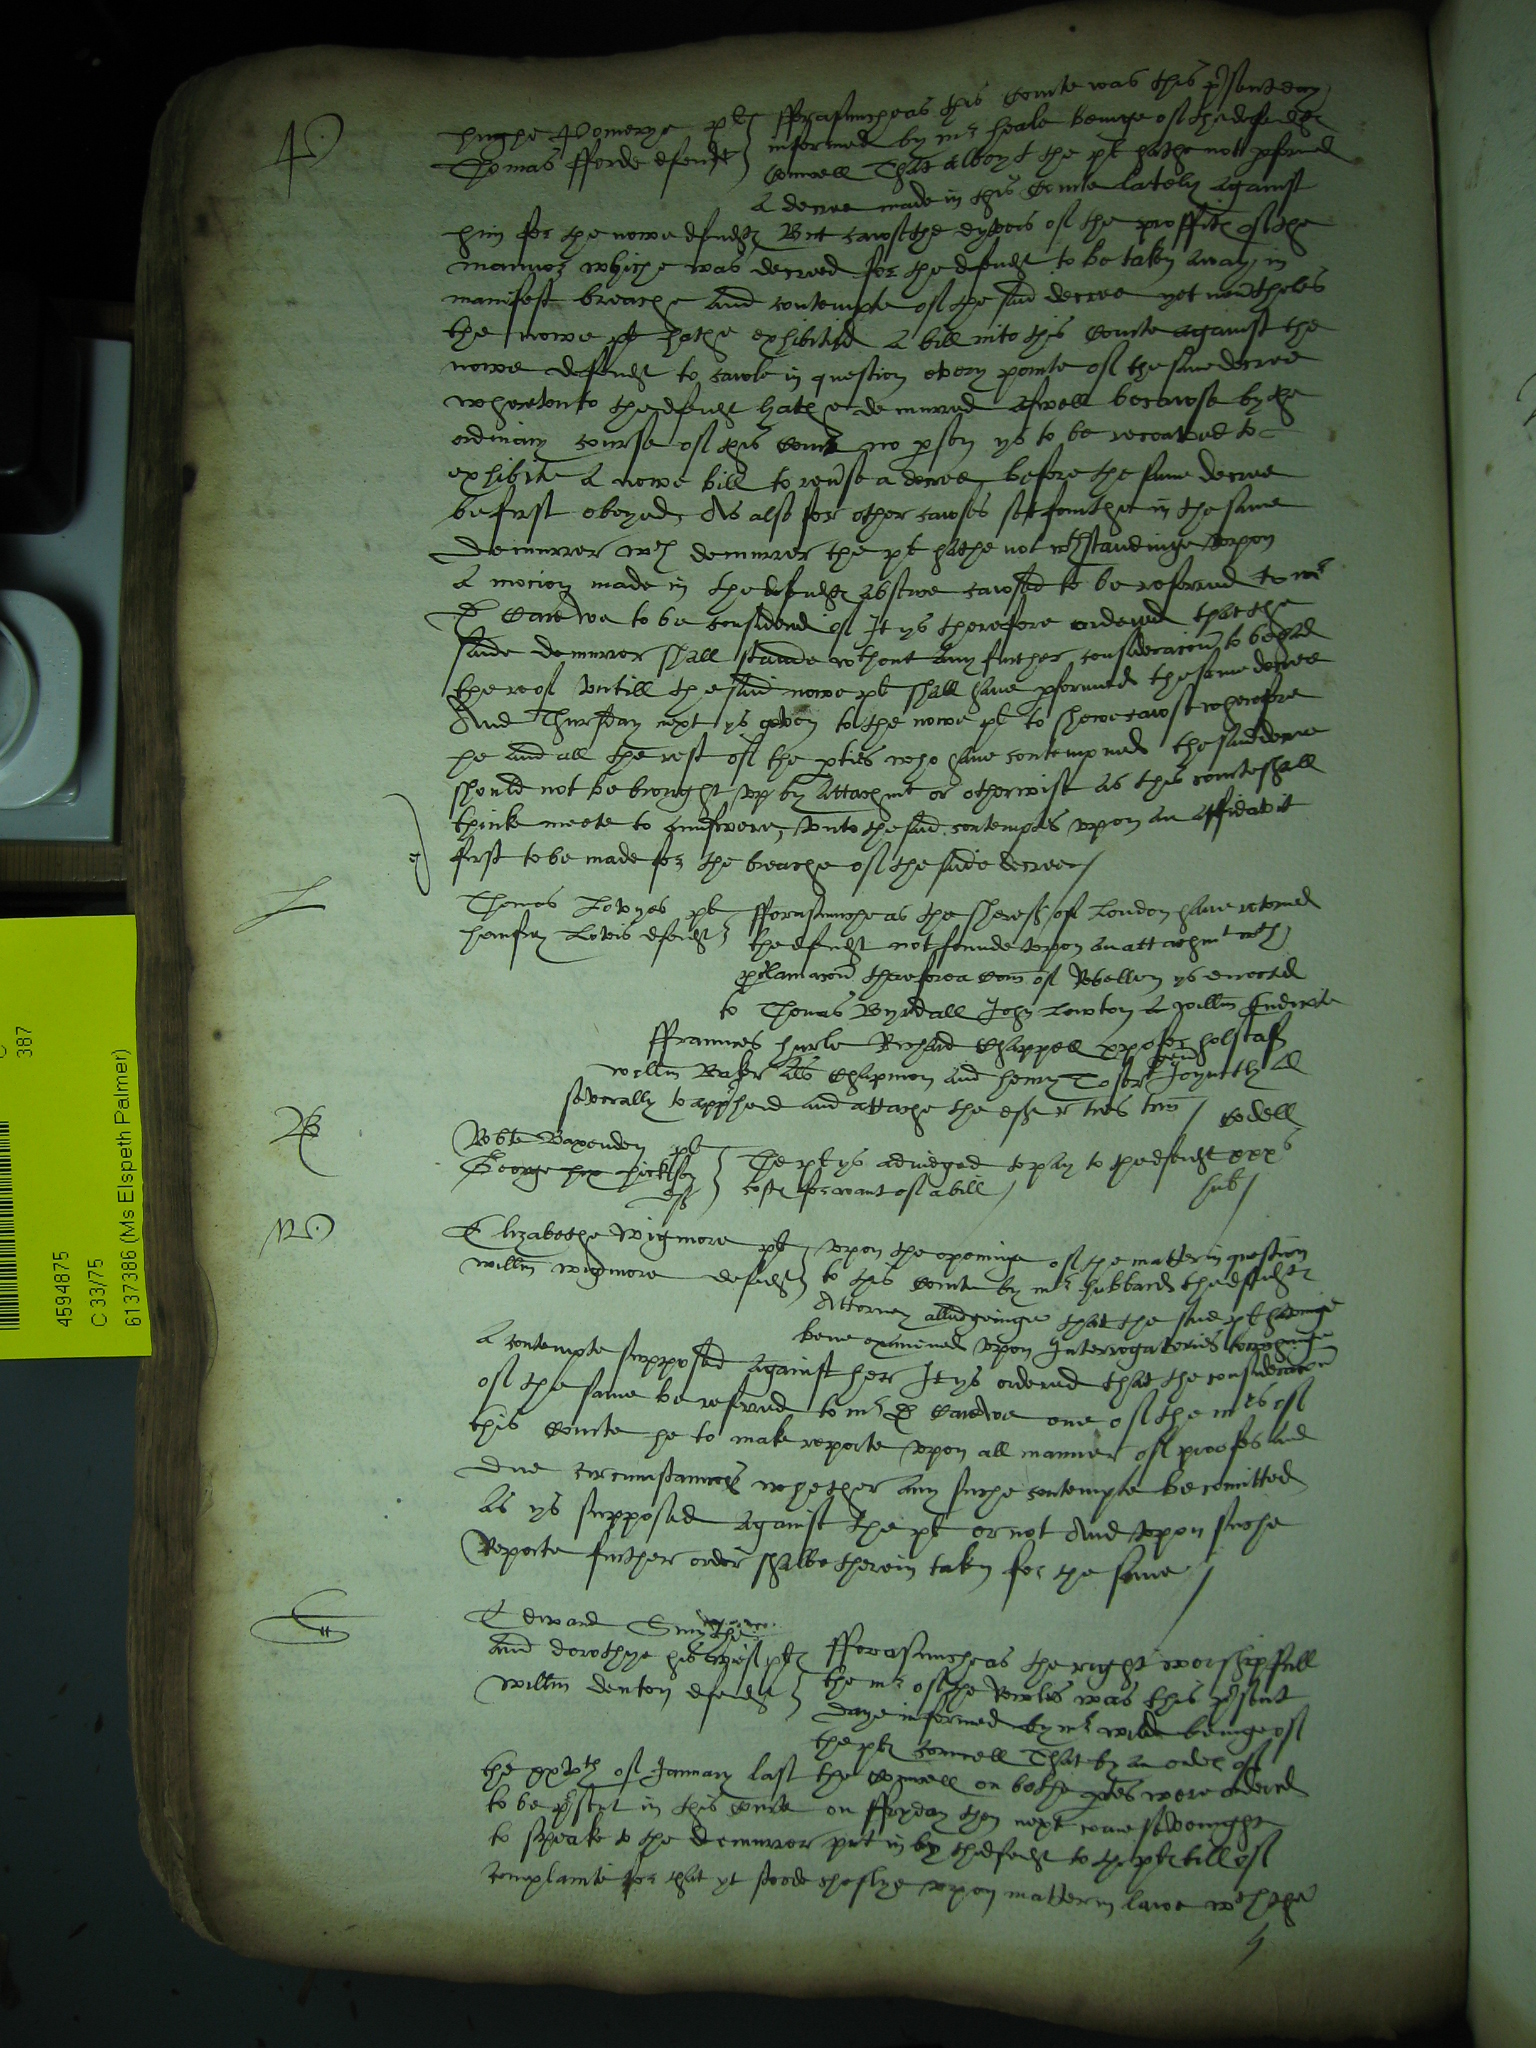 P
hughe Pomerye plt
Thomas fforde defendt
fforasmuche as this Courte was this present day
informed by mr heale beinge of the defendtes
Councell That albeyt the plt hathe not performed
a decree made in this Courte lately against
him for the nowe defendt But cawsethe dyvers of the proffittes of the
mannor whiche was decreed for the defendt to be taken away in
manifest breache and contempte of the said decree yet nevertheles
the nowe plt hathe exhibited a bill into this Courte against the
nowe defendt to cawle in question every pointe of the same decree
wherevnto the defendt hathe demurred aswell becawse by the
ordinary course of this Courte no person ys to be receaved to
exhibite a newe bill to reverse a decree before the same decree
be first obeyed, As also for other cawses set fourthe in the same
demurrer wch demurrer the plt hathe notwthstandinge vpon
a mocion made in the defendtes absence cawsed to be referred to mr
D Carewe to be considered of It ys therefore ordered that the
saide demurrer shall stande wthout any further consideracion to be had
thereof vntill the said nowe plt shall have performed the same decree
And Thursday next ys geven to the nowe plt to shewe cawse wherefore
he and all the rest of the parties who have contempned the said decree
should not be brought vp by attachmt or otherwise as this courte shall
think meete to aunswere, vnto the said contemptes vpon an affidavit
first to be made for the breache of the saide decree
L
Thomas Lovyes plt
homfrey Lovis defendt
fforasmuche as the shereffes of London have retorned
the defendt not founde vpon an attachmt wth
proclamacion therefore a Com of Rebellion ys directed
to Thomas Byrdall John Lewton willm
ffraunces hurle Richard Chappell holstaff
willm Baker als Chapman and henry Toser gen Joyntly and
severally to apprehend and attache the def
Codell
B
Robte Baxenden plt
George hickson def
The plt ys adiudged to pay to the defendt xxxs
costes for want of a bill
hub
W
Elizabethe Wigmore plt
Willm Wigmore defendt
vpon the openinge of the matter in question
to this Courte by mr hubbard the defendtes
Attorney alledginge that the said plt havinge
bene examined vpon Interrogatories towching
a contempte supposed against her It ys ordered that the consideracion
of the same be referred to mr D Carewe one of the mrs of
this Courte he to make reporte vpon all manner of proofes and
due circumstances whether any suche contempte be comitted
as ys supposed against the plt or not And vpon suche
Reporte further order shalbe therein taken for the same
Edward Smythe
and dorothye his wief plts
Willm denton defendt
fforasmuche as the right worshipfull
the mr of the Rowles was this present
daye informed by mr wilde beinge of
the pltes councell That by an order of
the xxvth of January last the Councell on bothe partes were ordered
to be present in this Courte on ffryday then next come sevenight
to speake to the demurrer put in by the defendt to the pltes bill of
complainte for that yt stoode cheflye vpon matter in lawe wch the
4594875
C 33/75
6137386 (Ms Elspeth Palmer)
387